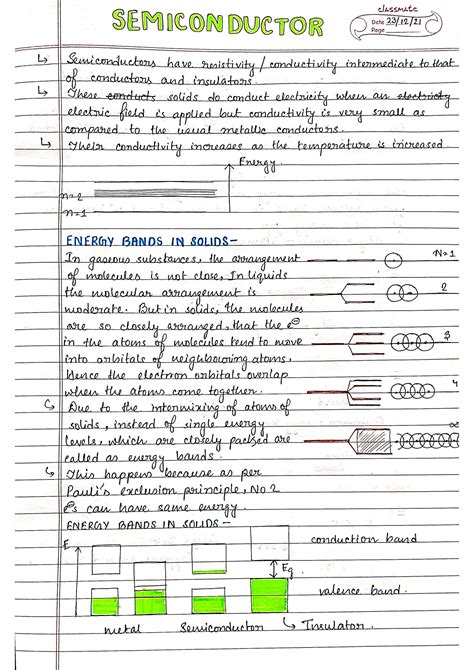 classmate
Date 23/12/21
Page
SEMICONDUCTOR
↳ Semiconductors have resistivity/conductivity intermediate to that
of conductors and insulators.
↳ These conducts solids do conduct electricity when an electricity
electric field is applied but conductivity is very small as
compared to the usual metallic conductors.
↳ Their conductivity increases as the temperature is increased.
Energy.
n=2
n=1
ENERGY BANDS IN SOLIDS-
In gaseous substances, the arrangement
of molecules is not close, In liquids
the molecular arrangement is
moderate. But in solids, the molecules
are so closely arranged, that the e⊖
in the atoms of molecules tend to move
into orbitals of neighbouring atoms.
Hence the electron orbitals overlap
when the atoms come together.
N=1
2
3
4
∞
↳ Due to the intermixing of atoms of
solids, instead of single energy
levels, which are closely packed are
called as energy bands.
↳ This happens because as per
Pauli's exclusion principle, No 2
e⊖s can have same energy.
ENERGY BANDS IN SOLIDS-
E
conduction band
Eg
valence band.
metal Semiconductor ↳ Insulator.